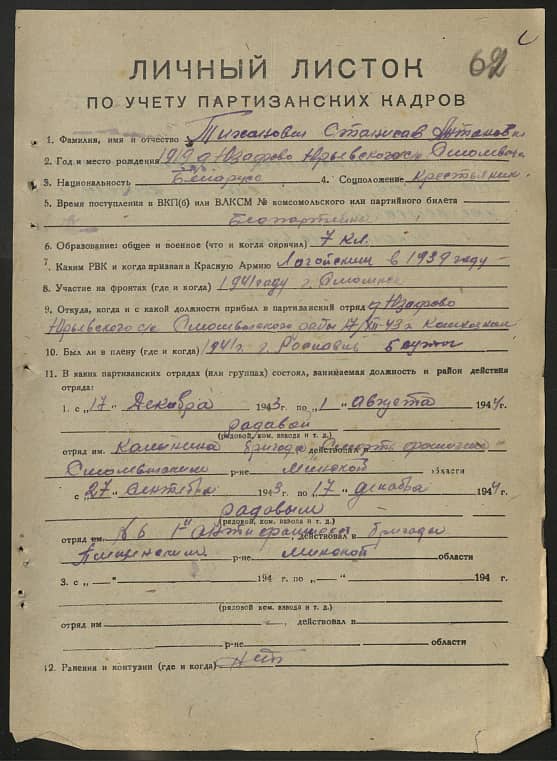 62
ЛИЧНЫЙ ЛИСТОК
ПО УЧЕТУ ПАРТИЗАНСКИХ КАДРОВ
1. Фамилия, имя и отчество Тиханович Станислав Антонович
2. Год и место рождения 1919 д Юзафово Юрьевского с/с
3. Национальность Беларус 4. Соцположение Крестьянин
5. Время поступления в ВКП(б) или ВЛКСМ № комсомольского или партийного билета
6. Образование: общее и военное (что и когда окончил) 7 кл.
7. Каким РВК и когда призван в Красную Армию Логойским в 1939 году
8. Участие на фронтах (где и когда) 1941 году г.
9. Откуда, когда и с какой должности прибыл в партизанский отряд д Юзафово
Юрьевского с/с 17/XII-43 г.
10. Был ли в плену (где и когда) 1941 г. г. Рославль
11. В каких партизанских отрядах (или группах) состоял, занимаемая должность и район действия
отряда:
1. с „17“ Декабря 1943 г. по „1“ Августа 194 г.
радавой
(рядовой, ком. взвода и т. д.)
отряд им. Калинина бригада действовал в
р-не Минской области
с „27“ Сентебра 1943 г. по „17“ декабра 194 г.
радовым
(рядовой, ком. взвода и т. д.)
отряд им. № 6 действовал в бригады
р-не Минской области
3. с „—“ 194 г. по „—“ 194 г.
(рядовой, ком. взвода и т. д.)
отряд им , действовал в
р-не области
12. Ранения и контузии (где и когда) нет